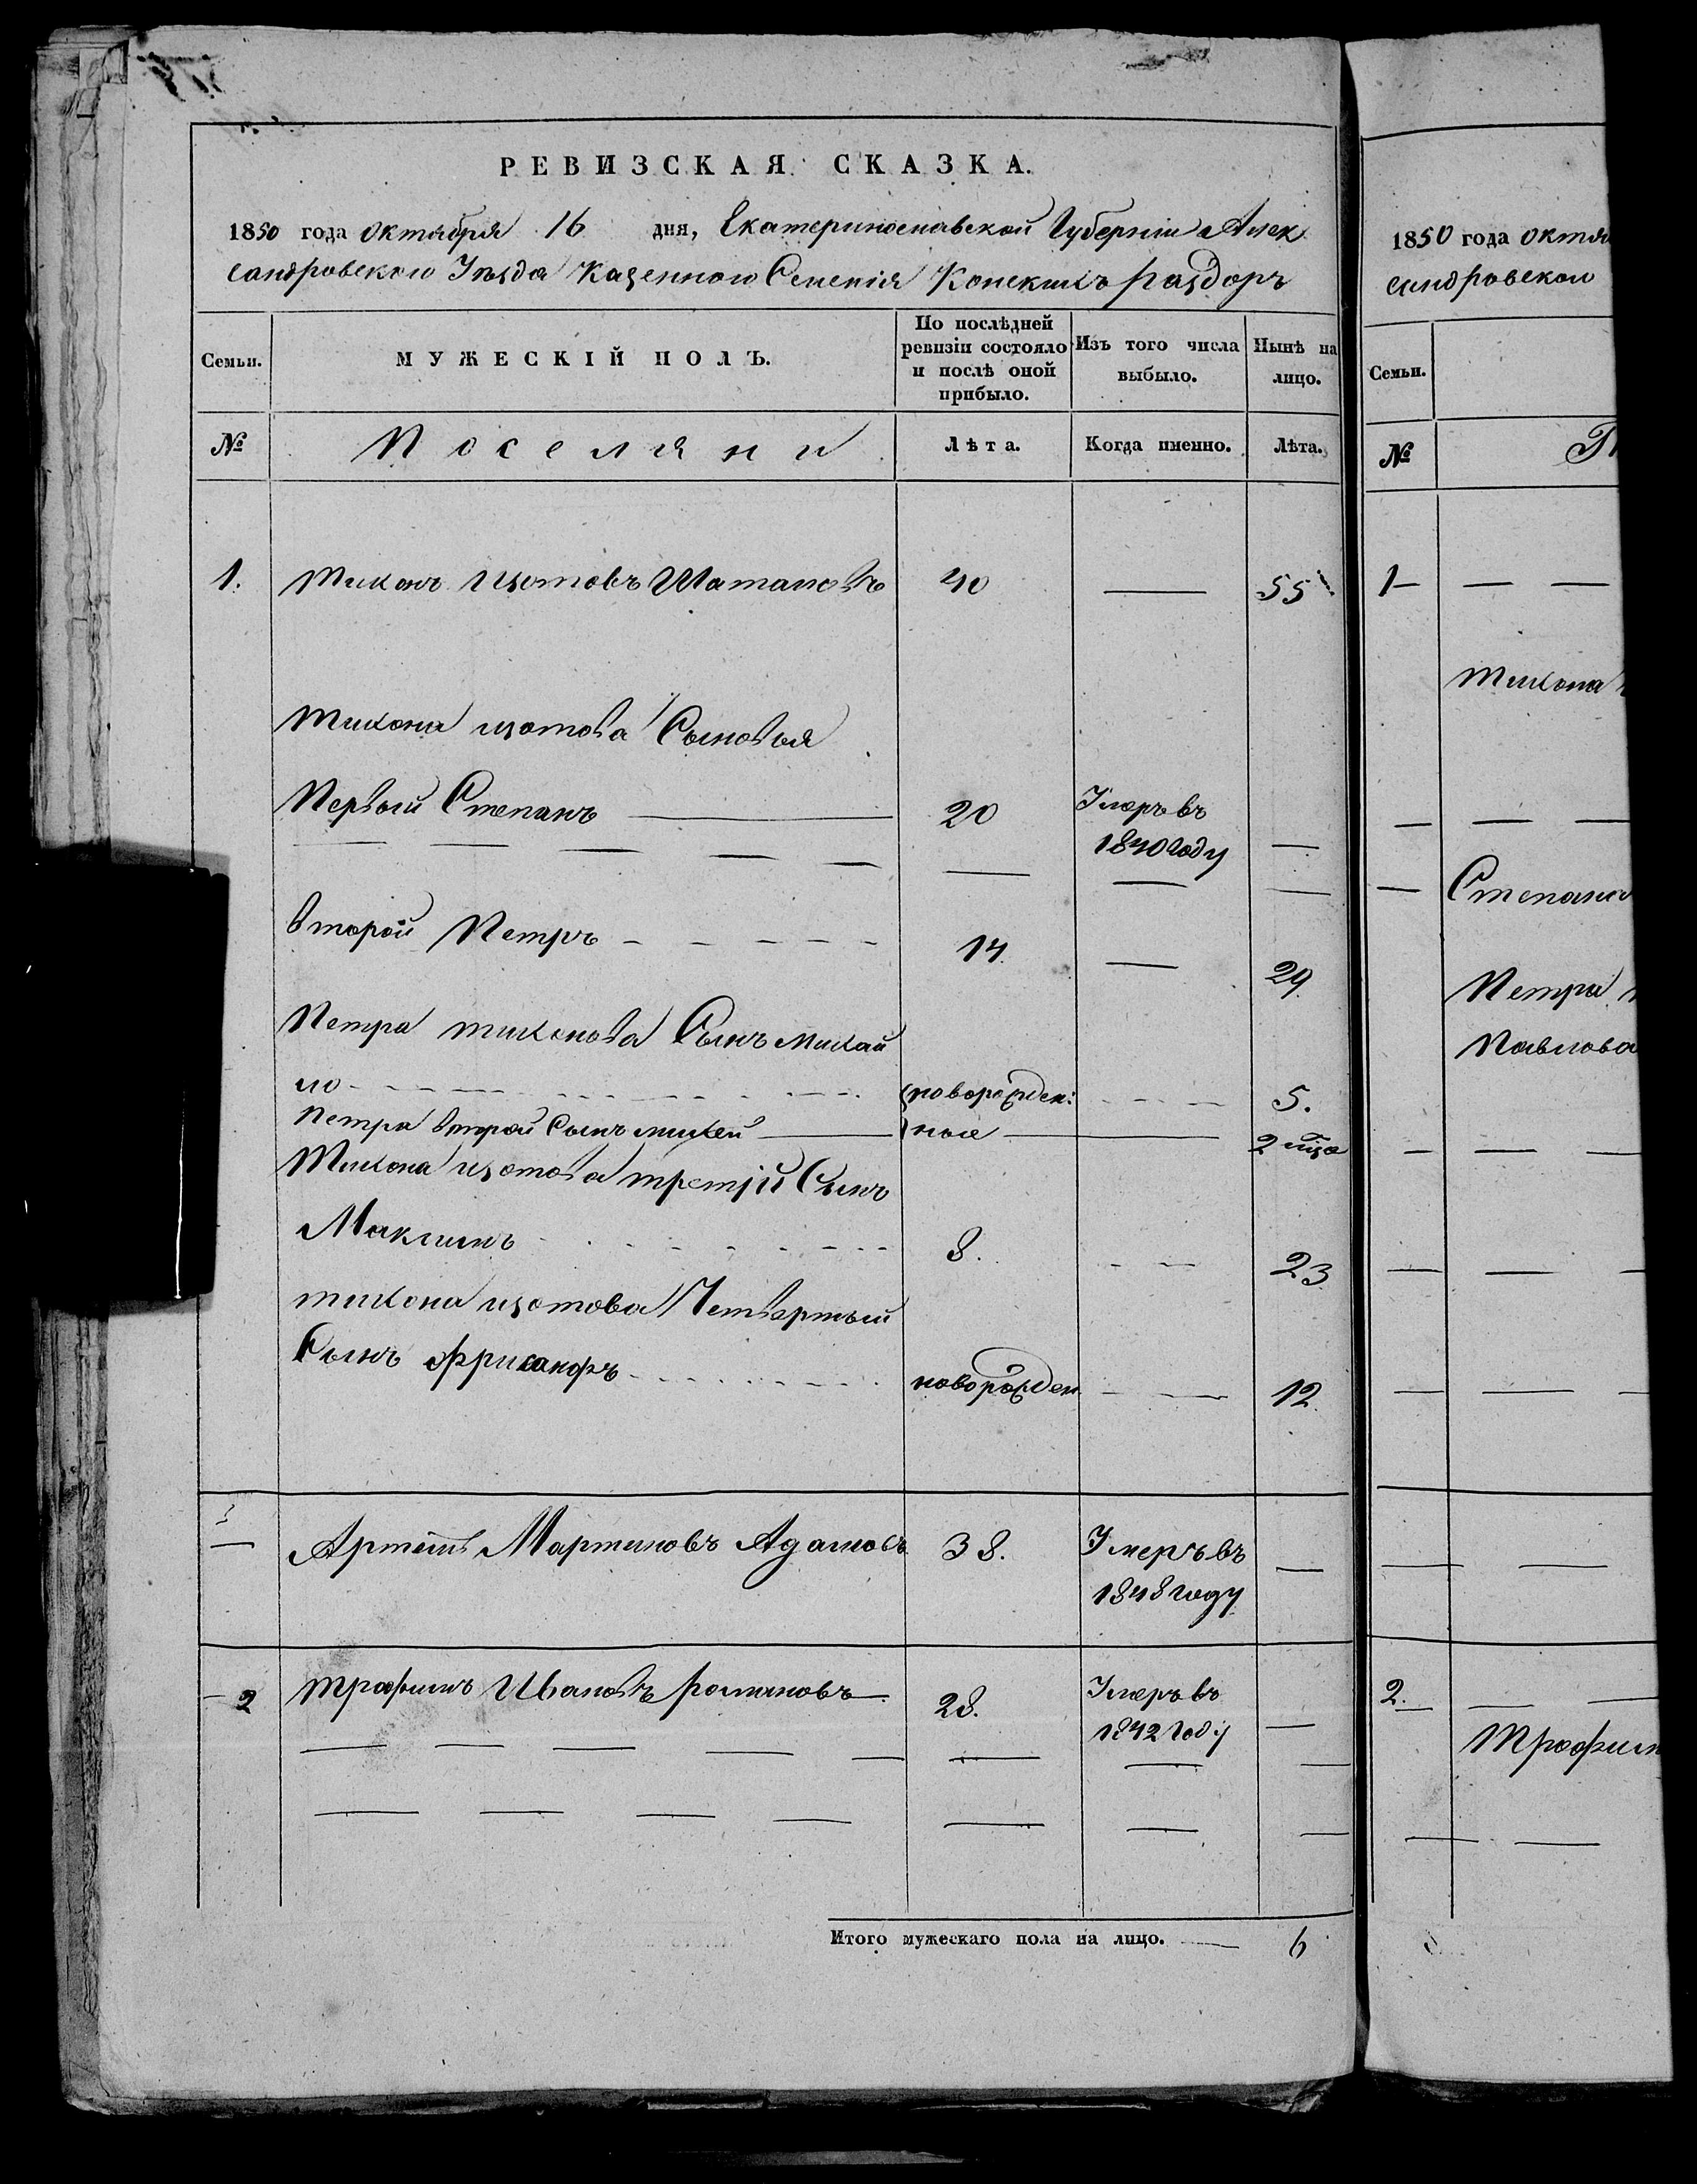 РЕВИЗСКАЯ СКАЗКА.
1850 года октября 16 дня, Екатеринославской Губерніи Алек
сандровского Уезда Казенного Селенія Конскихъ раздоръ
Семьи.
МУЖЕСКІЙ ПОЛЪ.
По послѣдней ревизіи состояло и послѣ оной прибыло.
Изъ того числа выбыло.
Нынѣ на лицо.
№
Поселяни
Лѣта.
Когда именно.
Лѣта.
1. Тихонъ Изотовъ 40 — 55
Тихона изотова Сыновья
Первый Степанъ 20 Умеръ въ
1840 году —
второй Петръ 14 — 29.
Петра тихонова Сынъ михай
ло новорожден: 5.
Петра второй Сынъ михей ные 2 мца
Тихона изотова третій Сынъ
Максимъ 8. 23
тихона изотова Четвертый
Сынъ новорожден 12.
— Артемъ Мартиновъ Адамовъ 38. Умеръ въ
1848 году —
2 трофимъ Ивановъ романовъ 28. Умеръ въ
1842 году —
Итого мужескаго пола на лицо. 6
1850 года октя
сандровского
Семьи.
№
1
тихона
Степана
Петра
Павлова
2.
Трофим